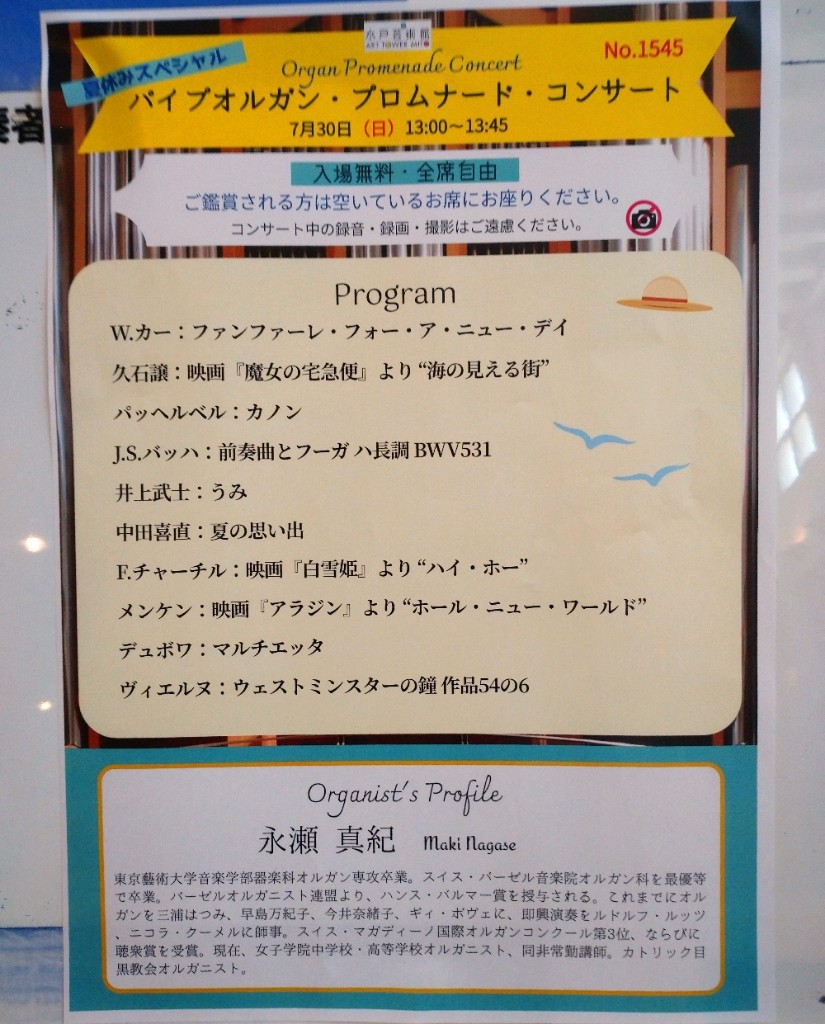 水戸芸術館
ART TOWER MITO
No.1545
夏休みスペシャル
Organ Promenade Concert
パイプオルガン・プロムナード・コンサート
7月30日（日）13:00～13:45
入場無料・全席自由
ご鑑賞される方は空いているお席にお座りください。
コンサート中の録音・録画・撮影はご遠慮ください。
Program
W.カー：ファンファーレ・フォー・ア・ニュー・デイ
久石譲：映画『魔女の宅急便』より “海の見える街”
パッヘルベル：カノン
J.S.バッハ：前奏曲とフーガ ハ長調 BWV531
井上武士：うみ
中田喜直：夏の思い出
F.チャーチル：映画『白雪姫』より “ハイ・ホー”
メンケン：映画『アラジン』より “ホール・ニュー・ワールド”
デュボワ：マルチエッタ
ヴィエルヌ：ウェストミンスターの鐘 作品54の6
Organist's Profile
永瀬 真紀 Maki Nagase
東京藝術大学音楽学部器楽科オルガン専攻卒業。スイス・バーゼル音楽院オルガン科を最優等
で卒業。バーゼルオルガニスト連盟より、ハンス・バルマー賞を授与される。これまでにオル
ガンを三浦はつみ、早島万紀子、今井奈緒子、ギィ・ボヴェに、即興演奏をルドルフ・ルッツ
、ニコラ・クーメルに師事。スイス・マガディーノ国際オルガンコンクール第3位、ならびに
聴衆賞を受賞。現在、女子学院中学校・高等学校オルガニスト、同非常勤講師。カトリック目
黒教会オルガニスト。